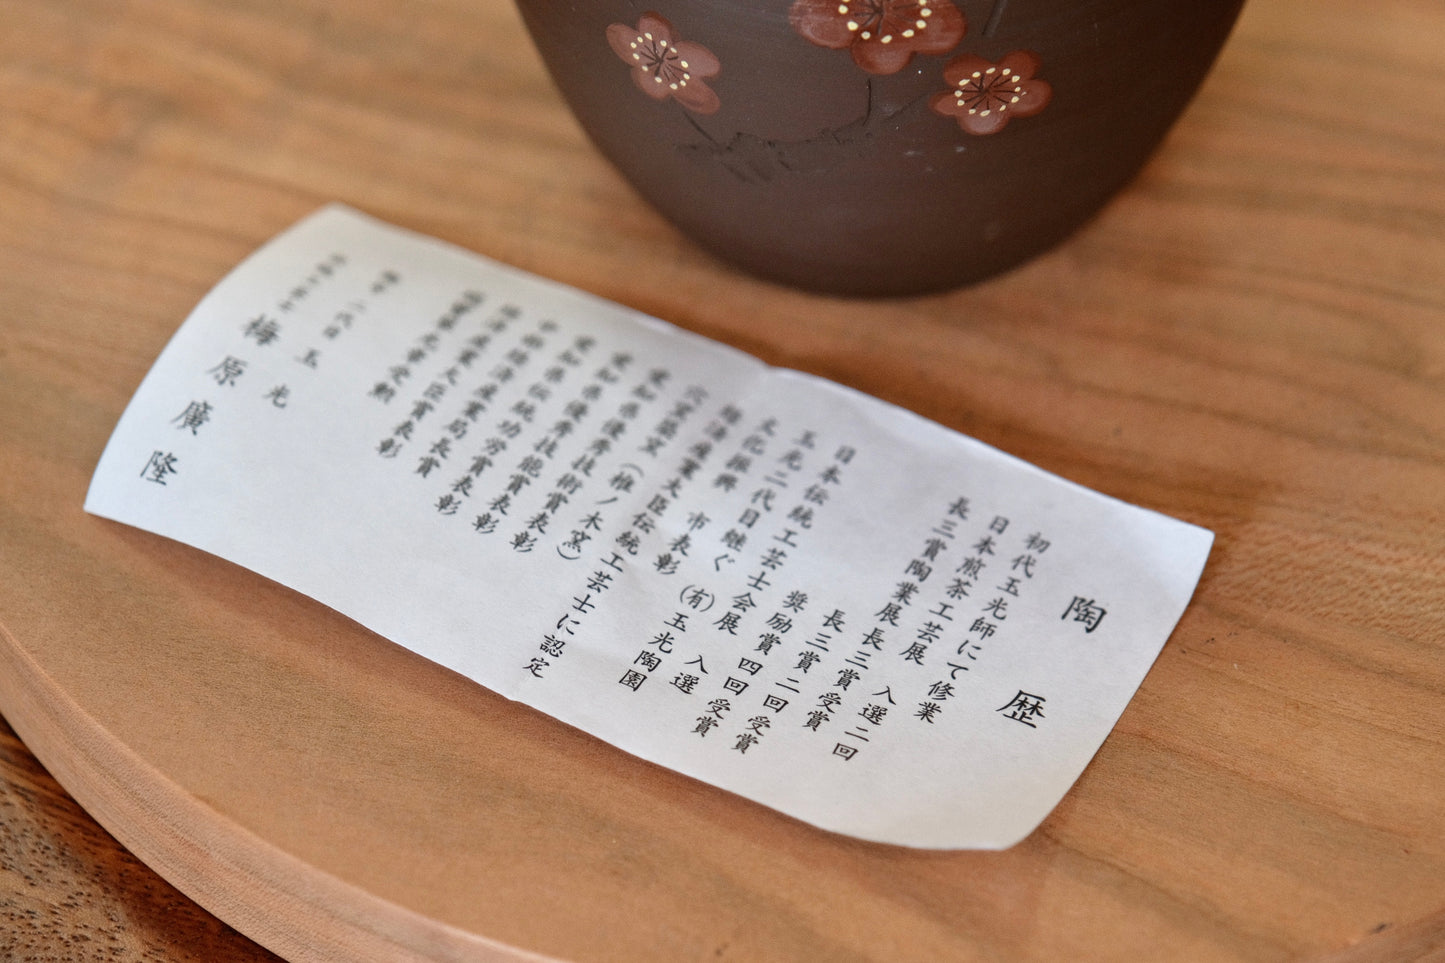 陶歴
初代玉光師にて修業
日本煎茶工芸展 入選二回
長三賞陶業展 長三賞受賞
長三賞二回受賞
奨励賞四回受賞
日本伝統工芸士会展 入選
玉光二代目継ぐ (有)玉光陶園
文化振興 市表彰
経済産業大臣伝統工芸士に認定
穴窯築窯(椎ノ木窯)
愛知県優秀技術賞表彰
愛知県優秀技能賞表彰
伝統功労賞表彰
中部経済産業局長賞
経済産業大臣賞表彰
瑞寶単光章受勲
二代目 玉光
梅原廣隆